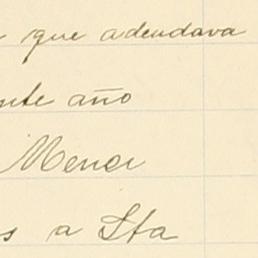 que adeudava
nte año
Menor
s a Sta